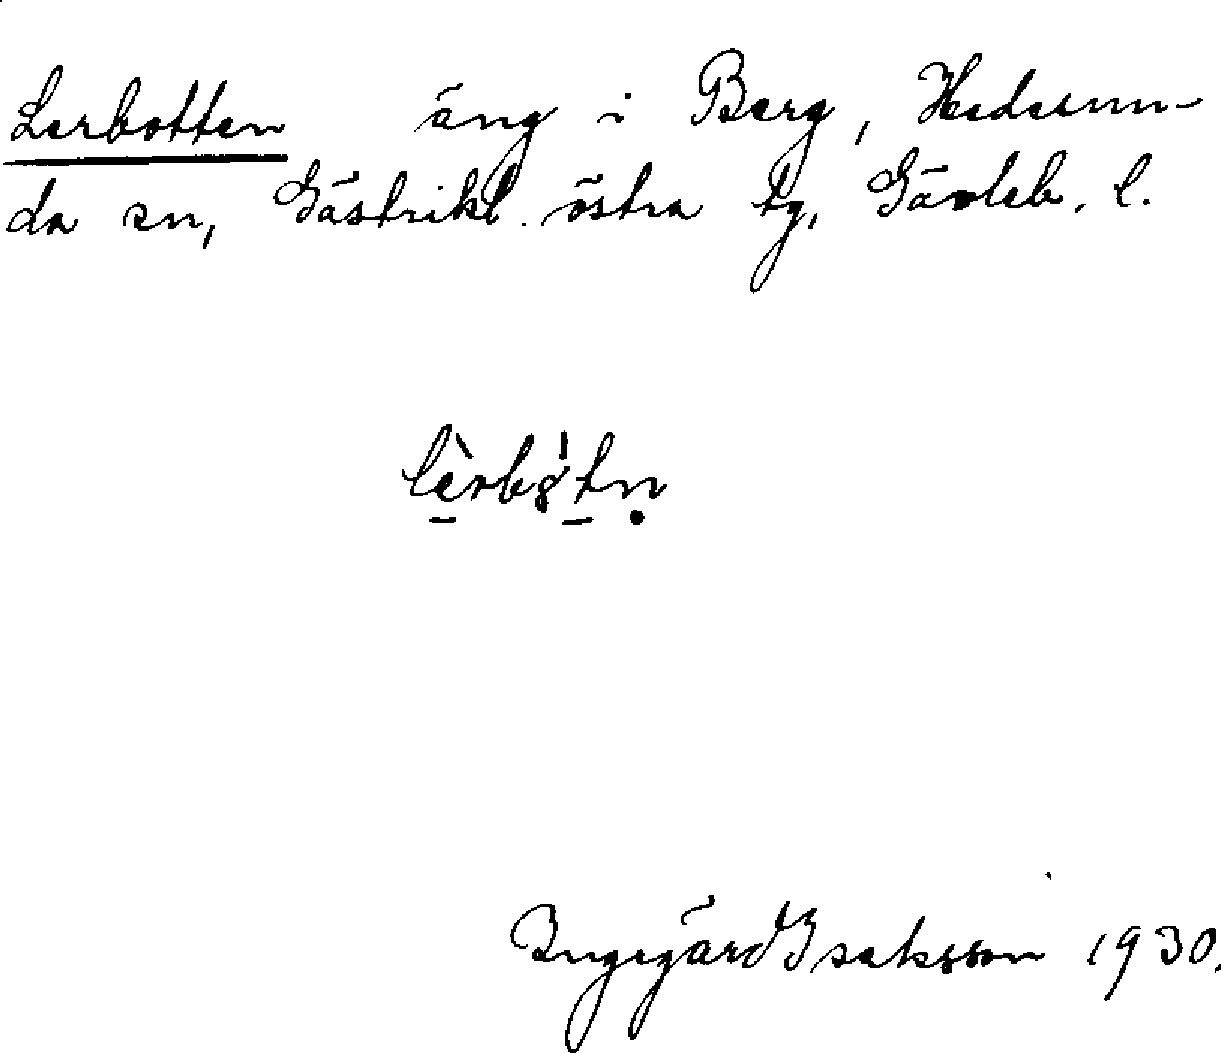 Lerbotten äng i Berg, Hedesun-
da sn, Gästrikl. östra tg, Gävleb. l.
Ingegärd Isaksson 1930.